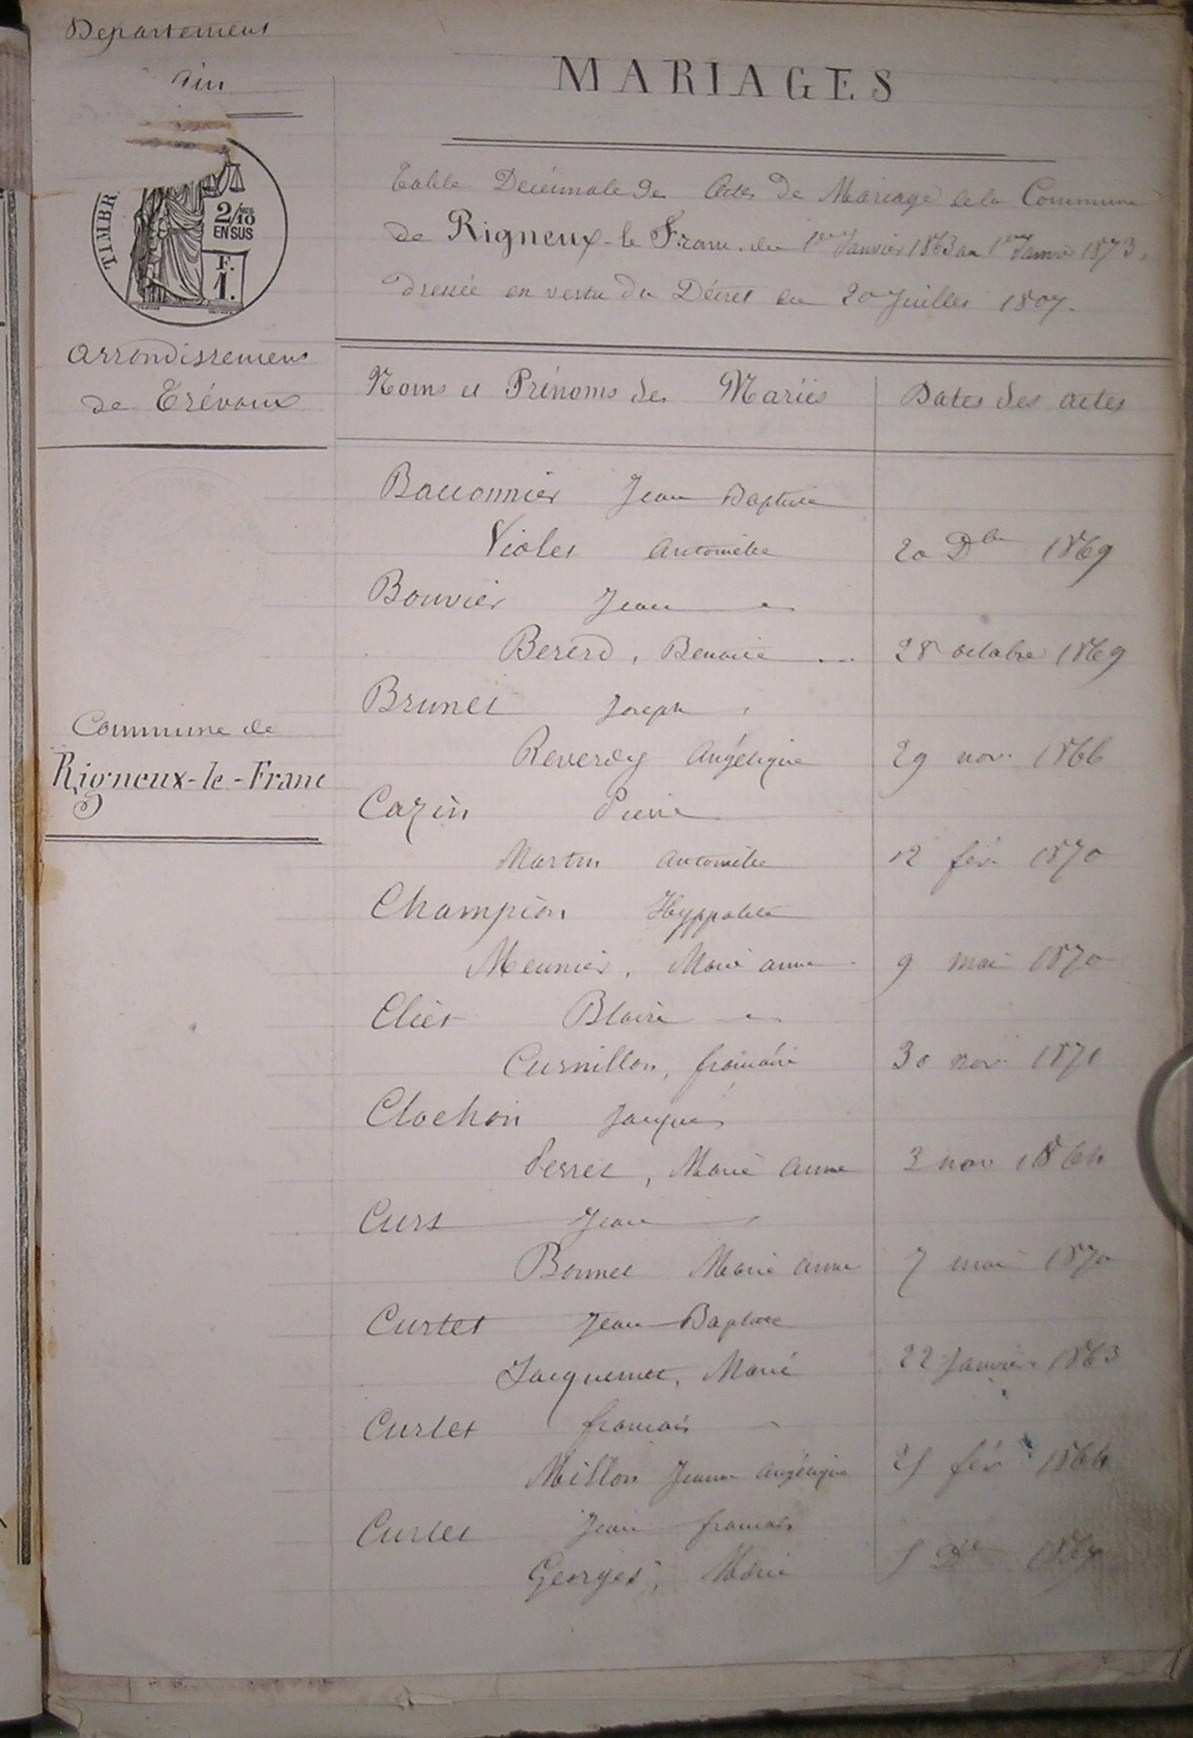 Département
Ain
TIMBR
2/10
EN SUS
F.
1.
Arrondissement
de Trévoux
Commune de
Rigneux-le-Franc
MARIAGES
Table Décennale des Actes de Mariage de la Commune
de Rigneux-le Franc du 1er Janvier 1863 au 1er Janvier 1873.
dressée en vertu du Décret du 20 Juillet 1807.
Noms et Prénoms des Mariés Dates des actes
Bacconnier Jean Baptiste
Violet Antoinette 20 Dbre 1869
Bouvier Jean
Bererd, Benoite 28 octobre 1869
Brunet Joseph
Reverdy Angélique 29 nov. 1866
Cazin Pierre
Martin Antoinette 12 fév. 1870
Champion Hyppolite
Meunier, Marie anne 9 mai 1870
Cliet Blaise
Curnillon, 30 nov. 1871
Clochon Jacques
Perret, Marie Anne 3 nov 1864
Curt Jean
Bonnet Marie Anne 7 mai 1870
Curtet Jean-Baptiste
Jacquemet, Marie 22 Janvier 1863
Curtet françois
Millon Jeanne Angélique fév 1864
Curtet Jean françois
Georges, Marie